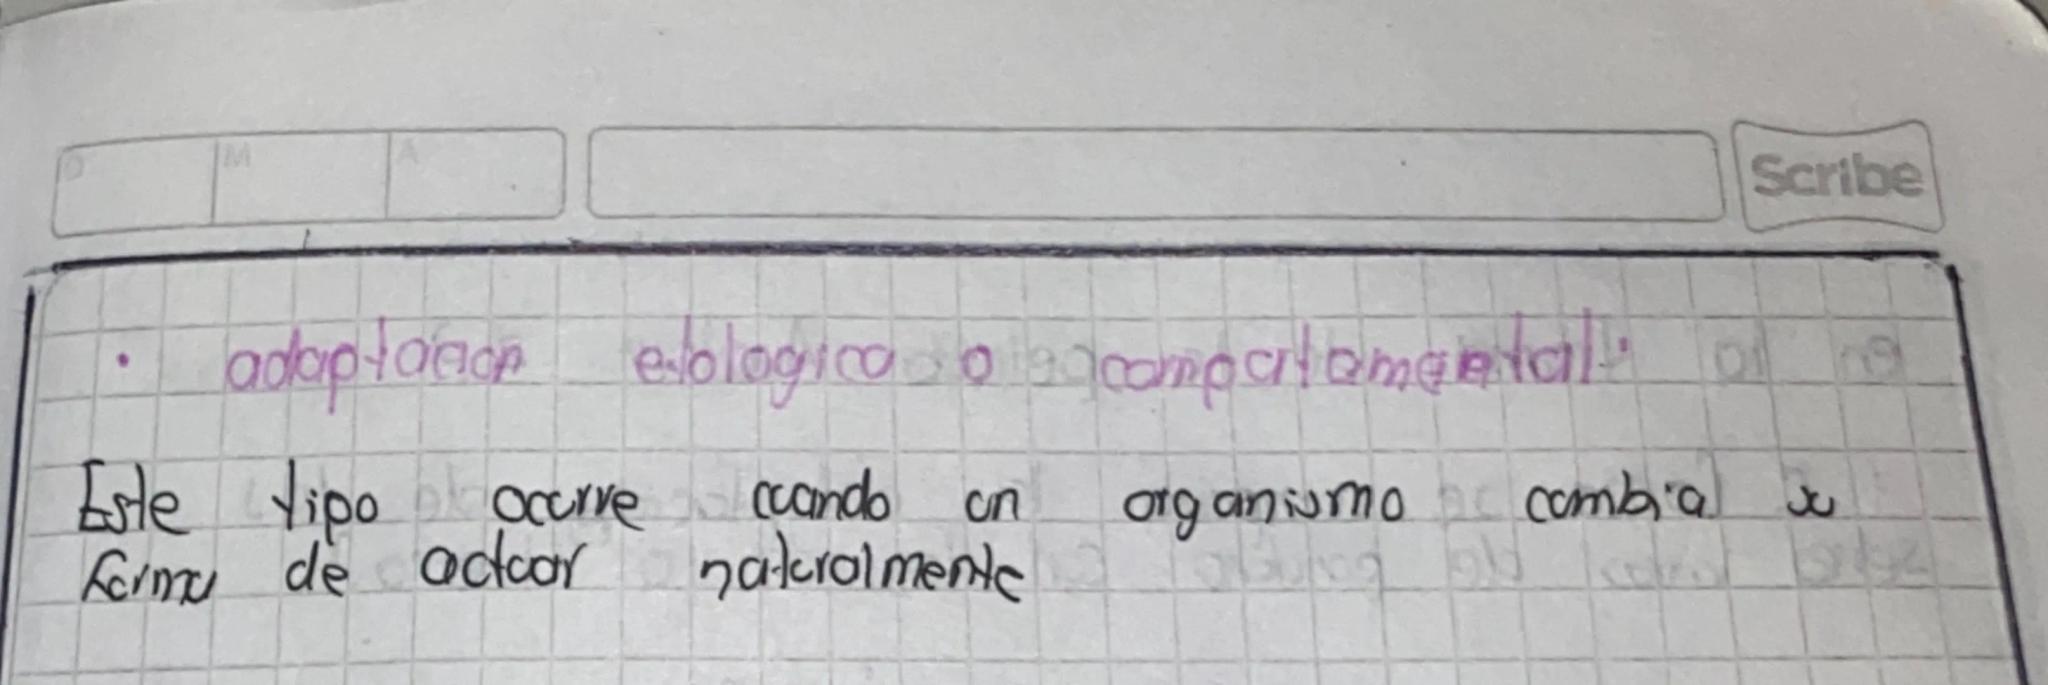 D M A Scribe
• adaptación etologica o compartamental:
Este tipo ocurre cuando un organismo cambia su
forma de actuar naturalmente